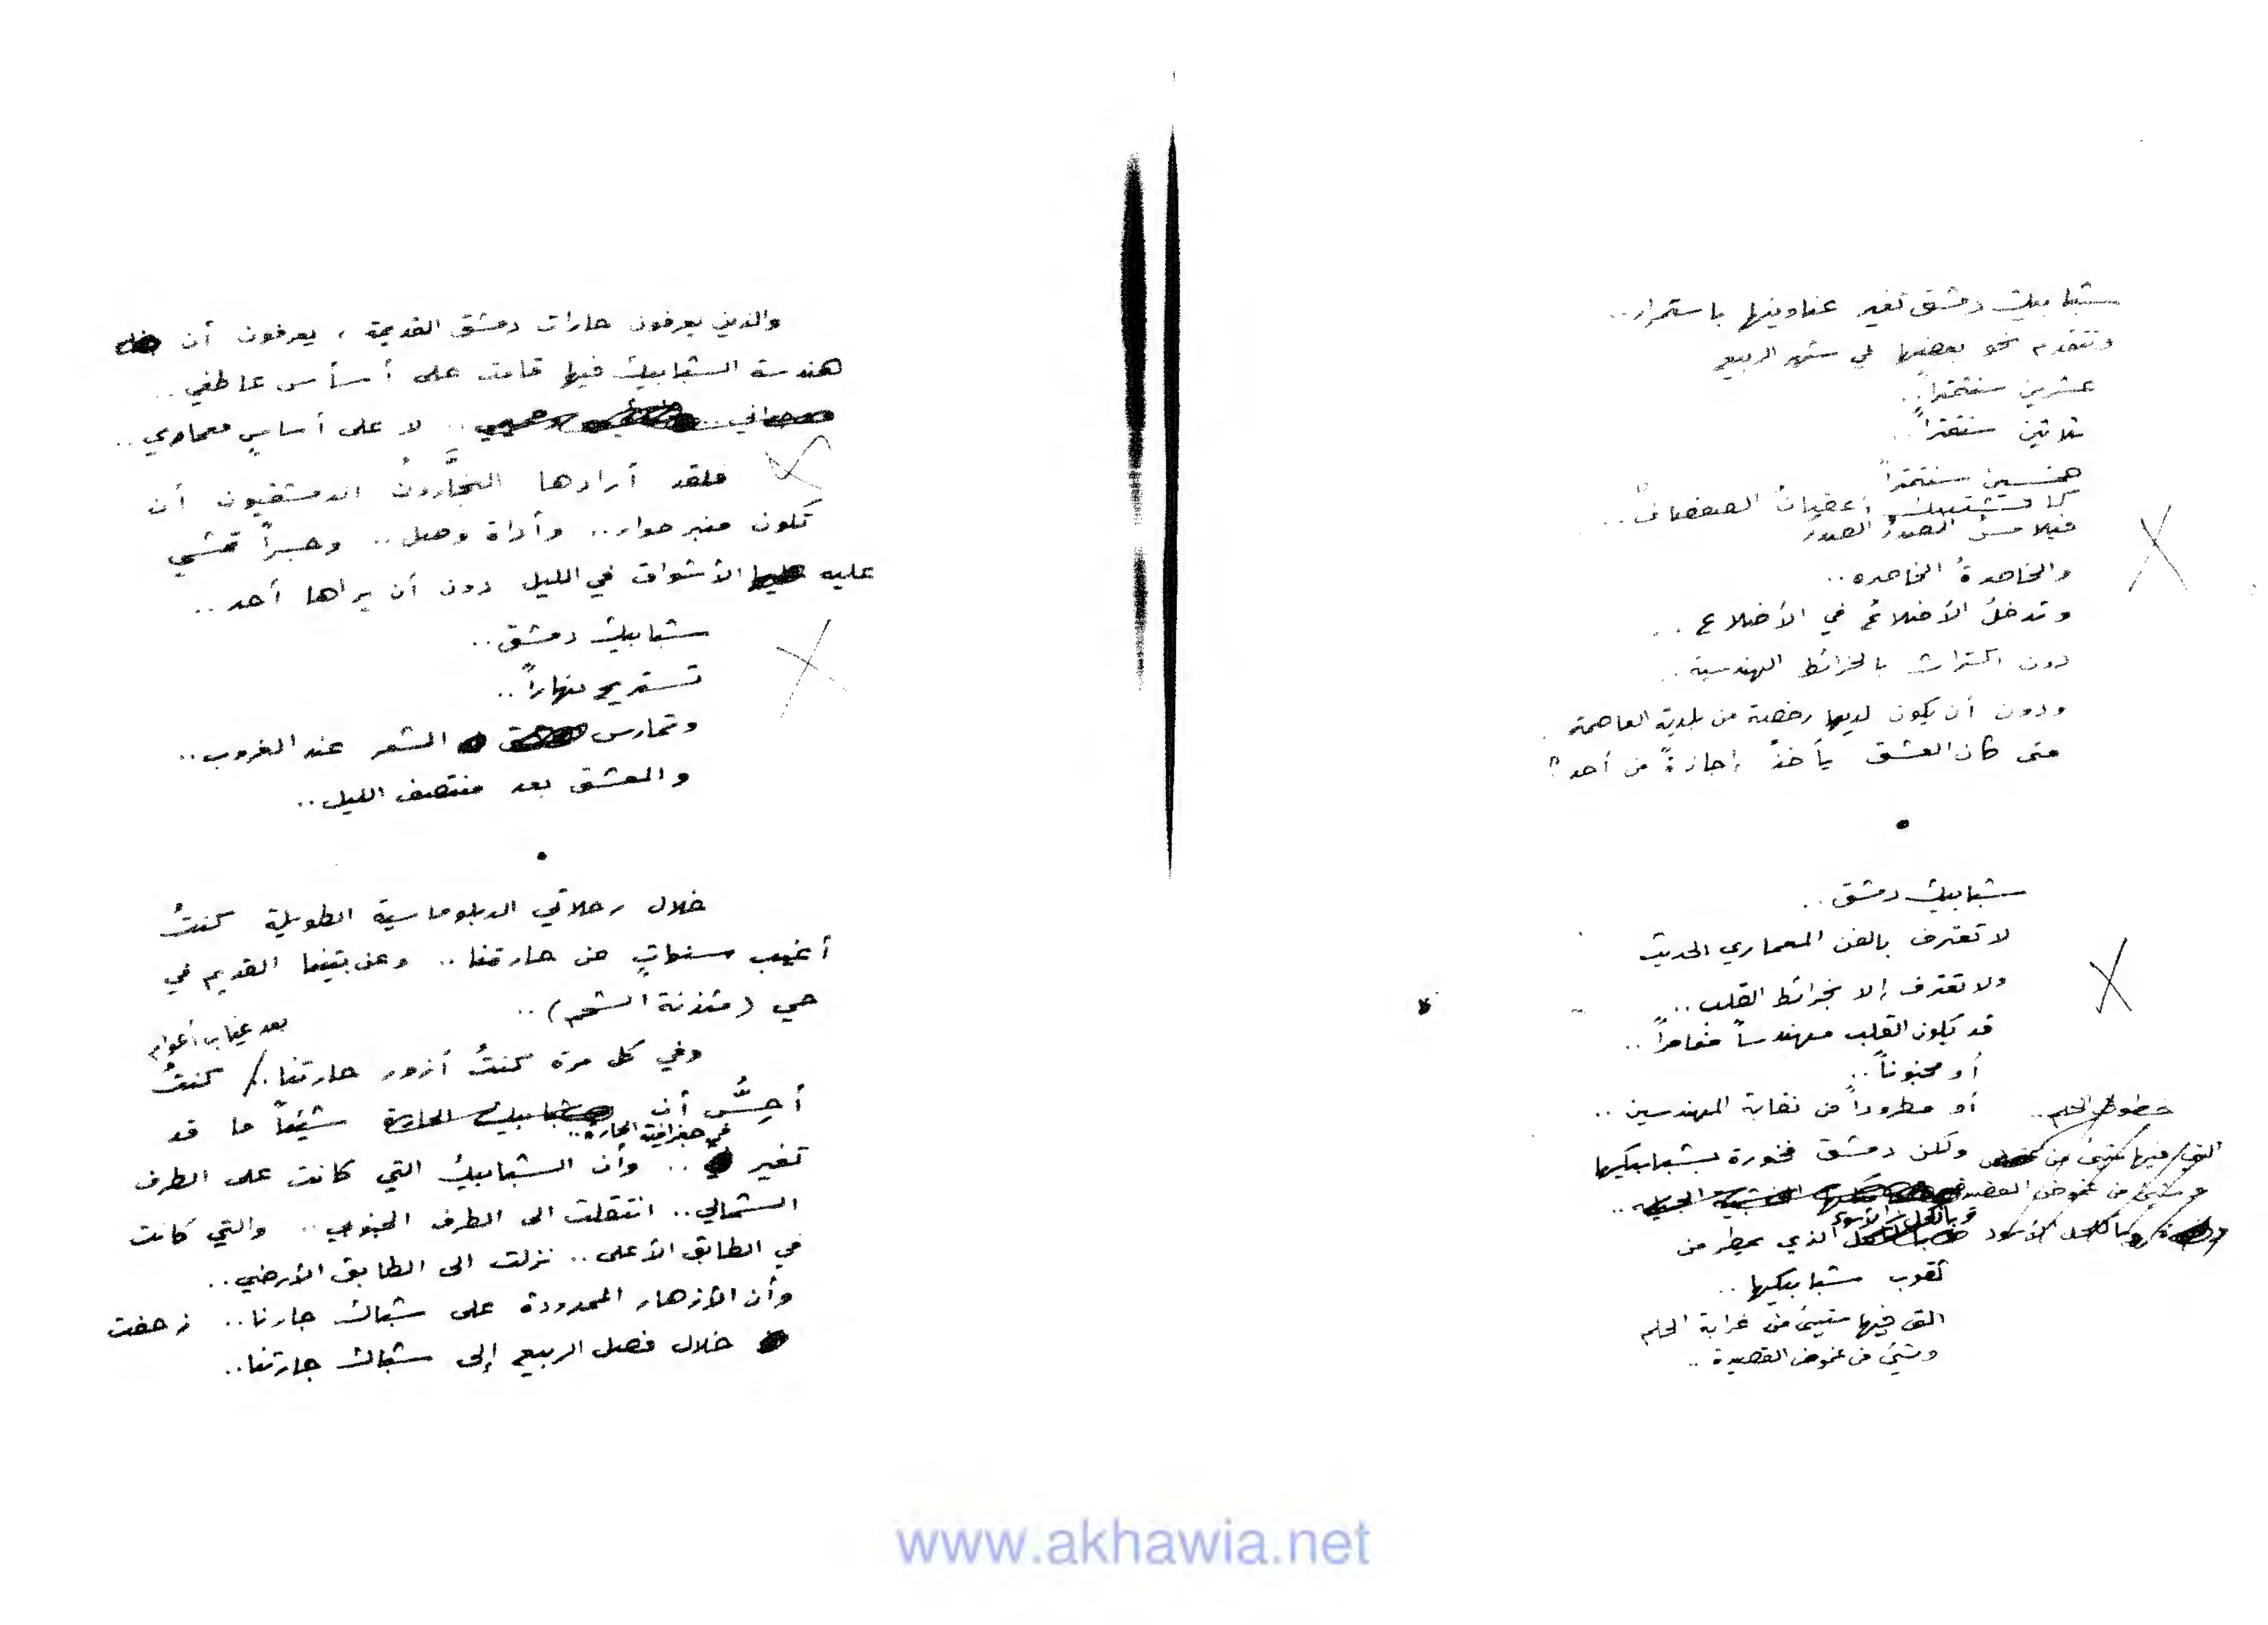 شبابيك دمشق تغير عناوينها باستمرار..
وتتقدم نحو بعضها في شهر الربيع
عشرين سنتمتراً..
ثلاثين سنتمتراً..
خمسين سنتمتراً
كما تشتبك أغصان الصفصاف..
فيلامسُ الصدرُ الصدرَ
والخاصرةُ الخاصره..
وتدخلُ الأضلاعُ في الأضلاع..
دون اكتراث بالخرائط الهندسية..
ودون أن يكون لديها رخصة من بلدية العاصمة
متى كان العشق يأخذُ إجازةً من أحد؟
•
شبابيك دمشق..
لا تعترف بالفن المعماري الحديث
ولا تعترف إلا بخرائط القلب..
قد يكون القلب مهندساً مغامراً..
أو مجنوناً..
أو مطروداً من نقابة المهندسين..
خطوط الحلم..
ولكن دمشق فخورة بشبابيكها
التي فيها شيء من
وشيء من غموض القصيدة
وبالكحل الأسود
الذي يمطر من
وبالكحل الأسود
ثقوب شبابيكها..
التي فيها شيء من غرابة الحلم
وشيء من غموض القصيدة..
والذين يعرفون حارات دمشق القديمة، يعرفون أن
هندسة الشبابيك فيها قامت على أساس عاطفي..
لا على أساسٍ معماري..
فلقد أرادها النجَّارون الدمشقيون أن
تكون منبر حوار.. وأداة وصل.. وجسراً تمشي
عليه الأشواق في الليل دون أن يراها أحد..
شبابيك دمشق..
تستريح نهاراً..
وتمارس الشعر عند الغروب..
والعشق بعد منتصف الليل..
•
خلال رحلاتي الدبلوماسية الطويلة كنتُ
أغيب سنواتٍ عن حارتنا.. وعن بيتنا القديم في
حي (مئذنة الشحم)..
بعد غياب أعوام
وفي كل مرة كنتُ أزور حارتنا../ كنتُ
أحِسُّ أن شبابيك الحارة شيئاً ما قد
في جغرافية الحارة..
تغير.. وأن الشبابيك التي كانت على الطرف
الشمالي.. انتقلت الى الطرف الجنوبي.. والتي كانت
في الطابق الأعلى.. نزلت الى الطابق الأرضي..
وأن الأزهار الممدودة على شباك جارنا.. زحفت
خلال فصل الربيع إلى شباك جارتنا..
www.akhawia.net